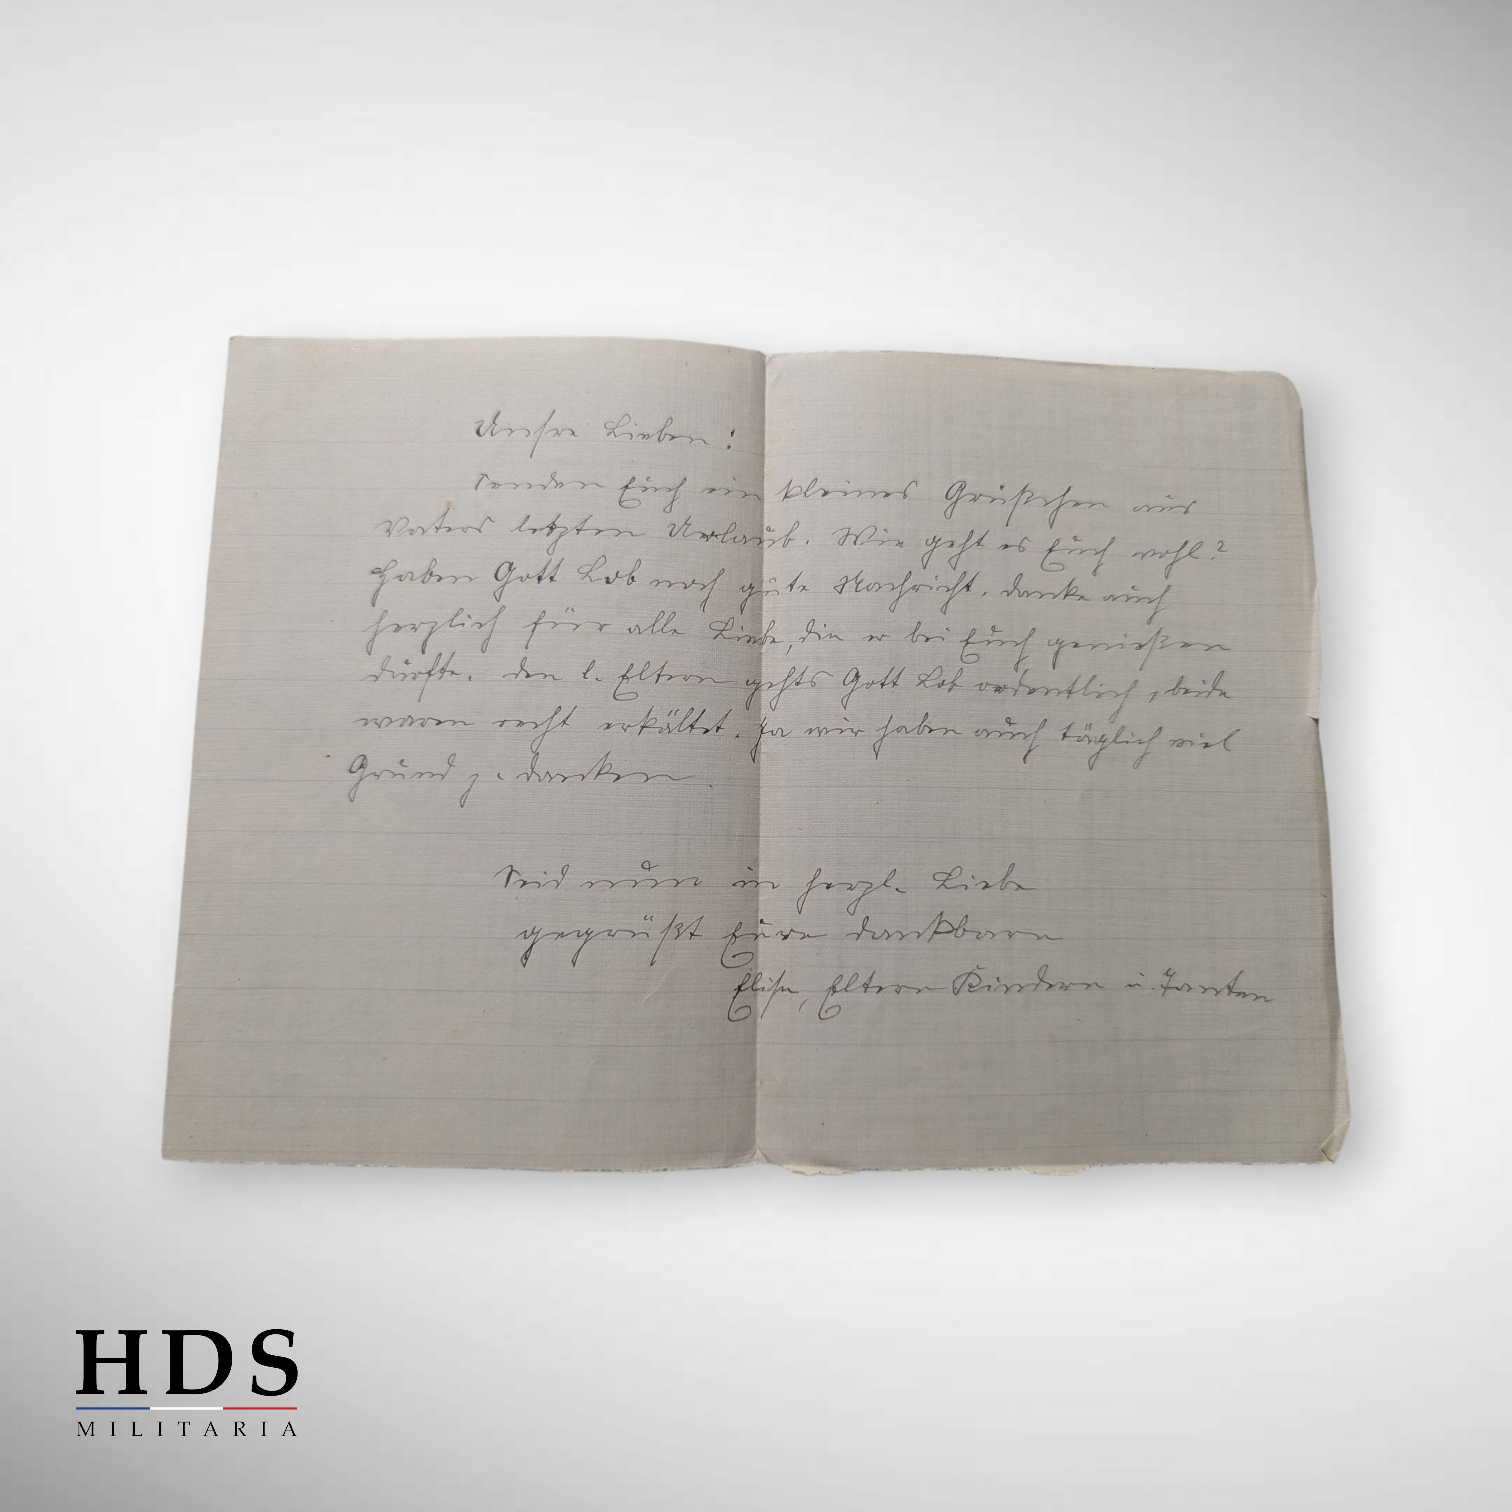 Unsre Lieben!
Senden Euch ein kleines Grüßchen aus
Vaters letzten Urlaub. Wie geht es Euch wohl?
Haben Gott Lob noch gute Nachricht, danke auch
herzlich für alle Liebe, die er bei Euch genießen
durfte. Den l. Eltern gehts Gott Lob ordentlich, beide
waren recht erkältet. Ja wir haben auch täglich viel
Grund z. danken.
Seid nun in herzl. Liebe
gegrüßt Eure dankbare
Elise, Eltern Kindern u. Tanten
HDS
MILITARIA